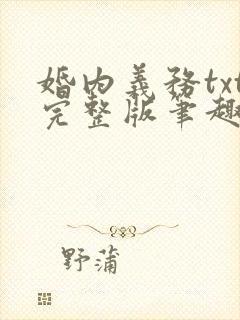 婚内義務txt
完整版筆趣
野蒲